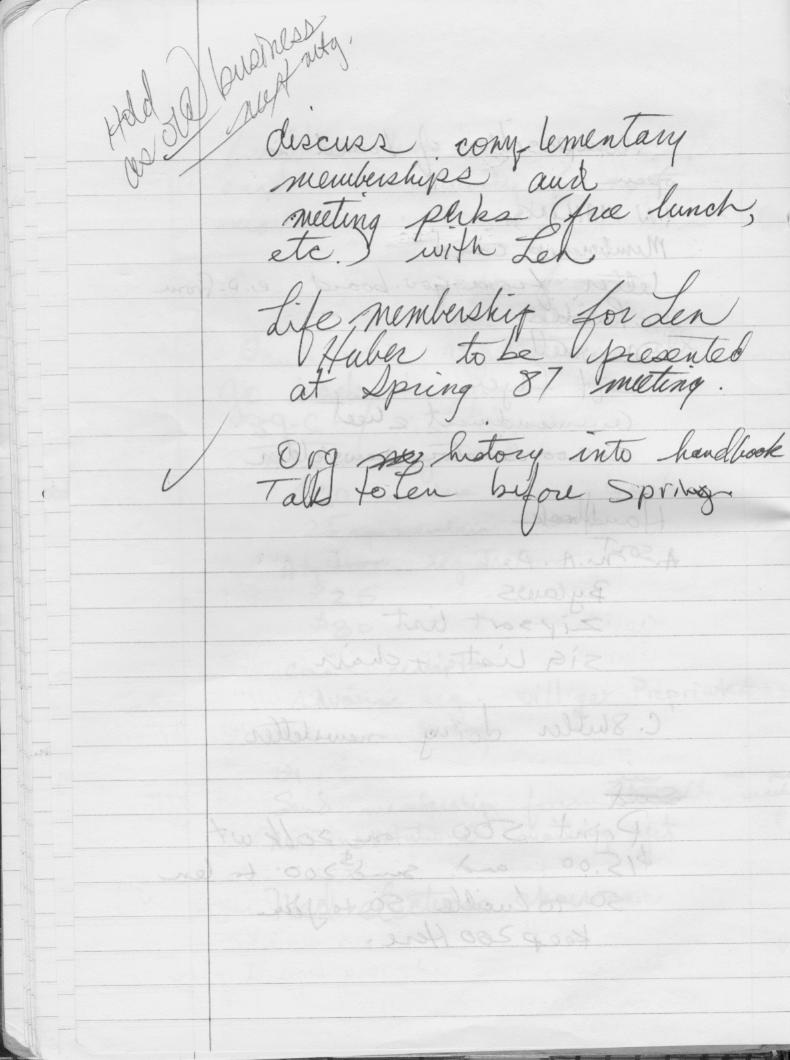 Hold
as old business
next mtg.
discuss complementary
memberships and
meeting perks (free lunch,
etc.) with Len
Life membership for Len
Huber to be presented
at Spring 87 meeting.
Org history into handbook
Talk to Len before Spring